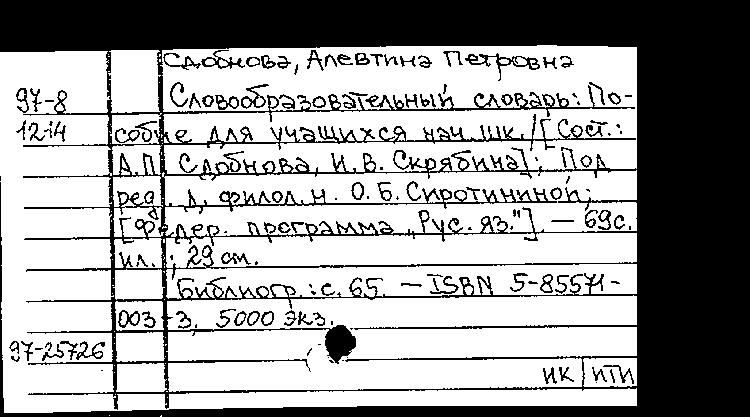 Сдобнова, Алевтина Петровна
97-8 Словообразовательный словарь: По-
1214 собие для учащихся нач. шк. / [Сост.:
А.П. Сдобнова, И. В. Скрябина]; Под
ред. д. филол. н. О. Б. Сиротининой;
[Федер. программа „Рус. яз."]. — 69 с.
ил. ; 29 см.
Библиогр.: с. 65. — ISBN 5-85571-
003-3, 5000 экз.
97-25726
ИК | ИТИ